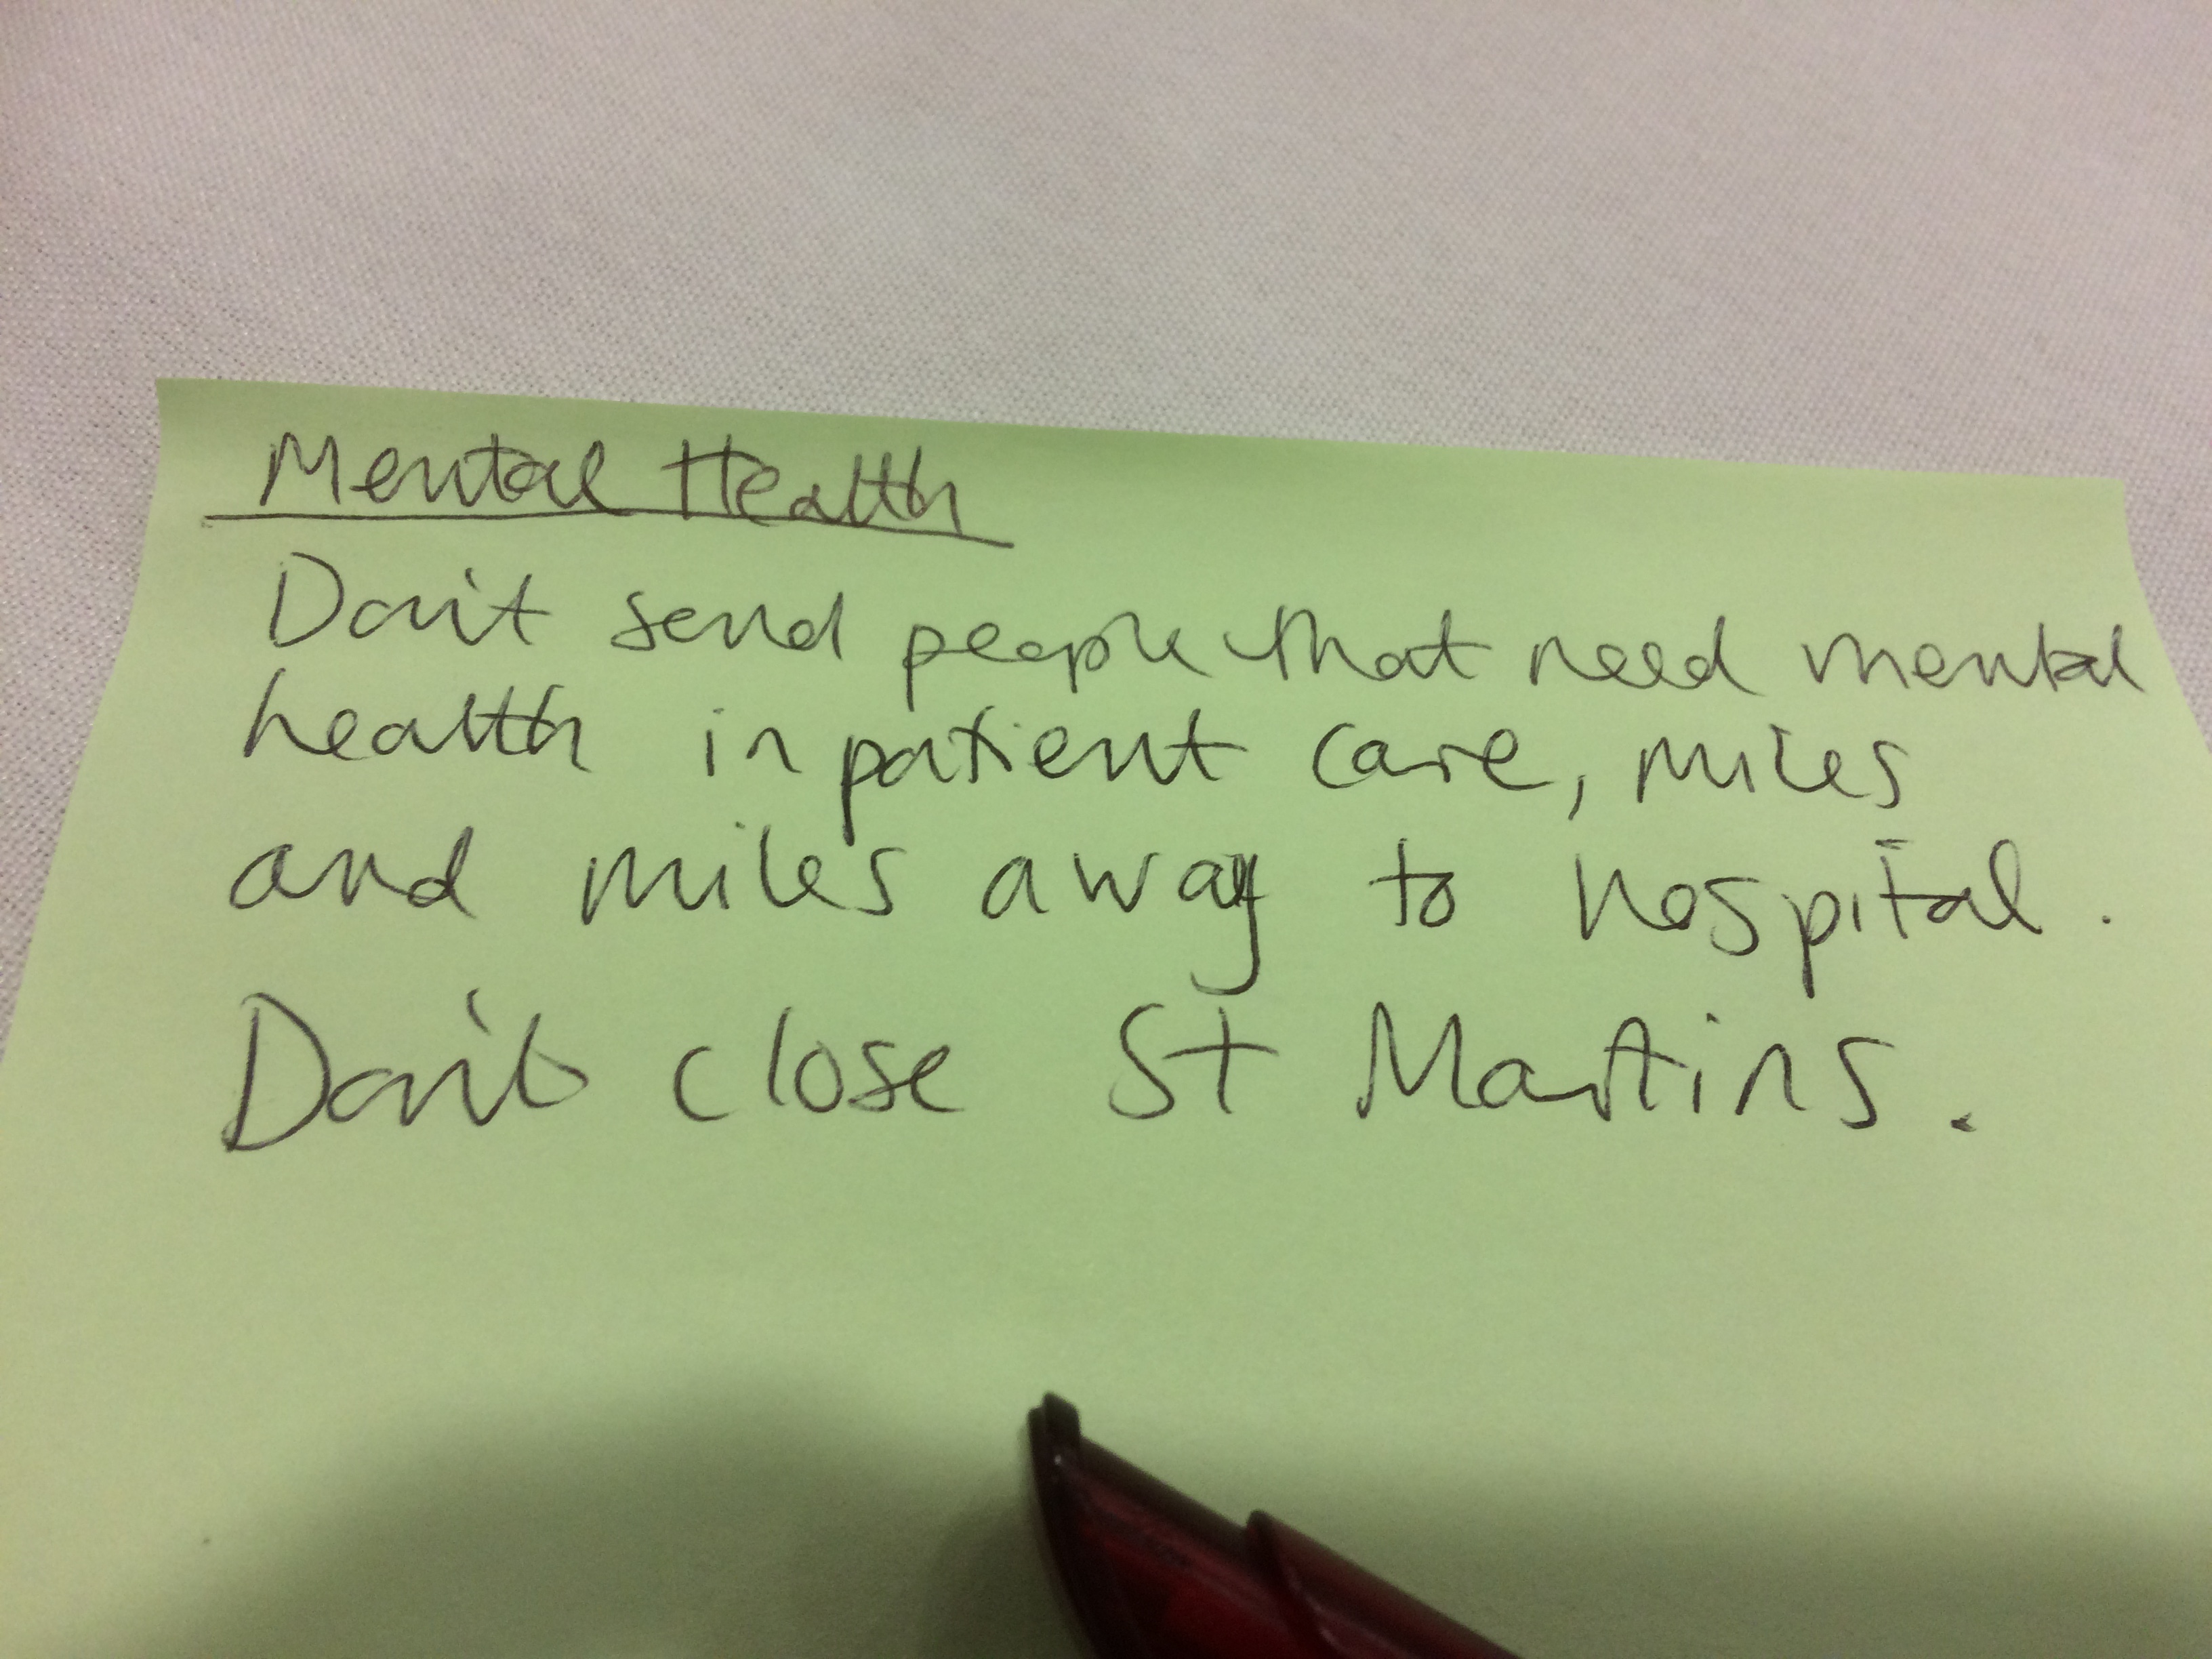 Mental Health
Don't send people that need mental
health inpatient care, miles
and miles away to hospital.
Don't close St Martins.